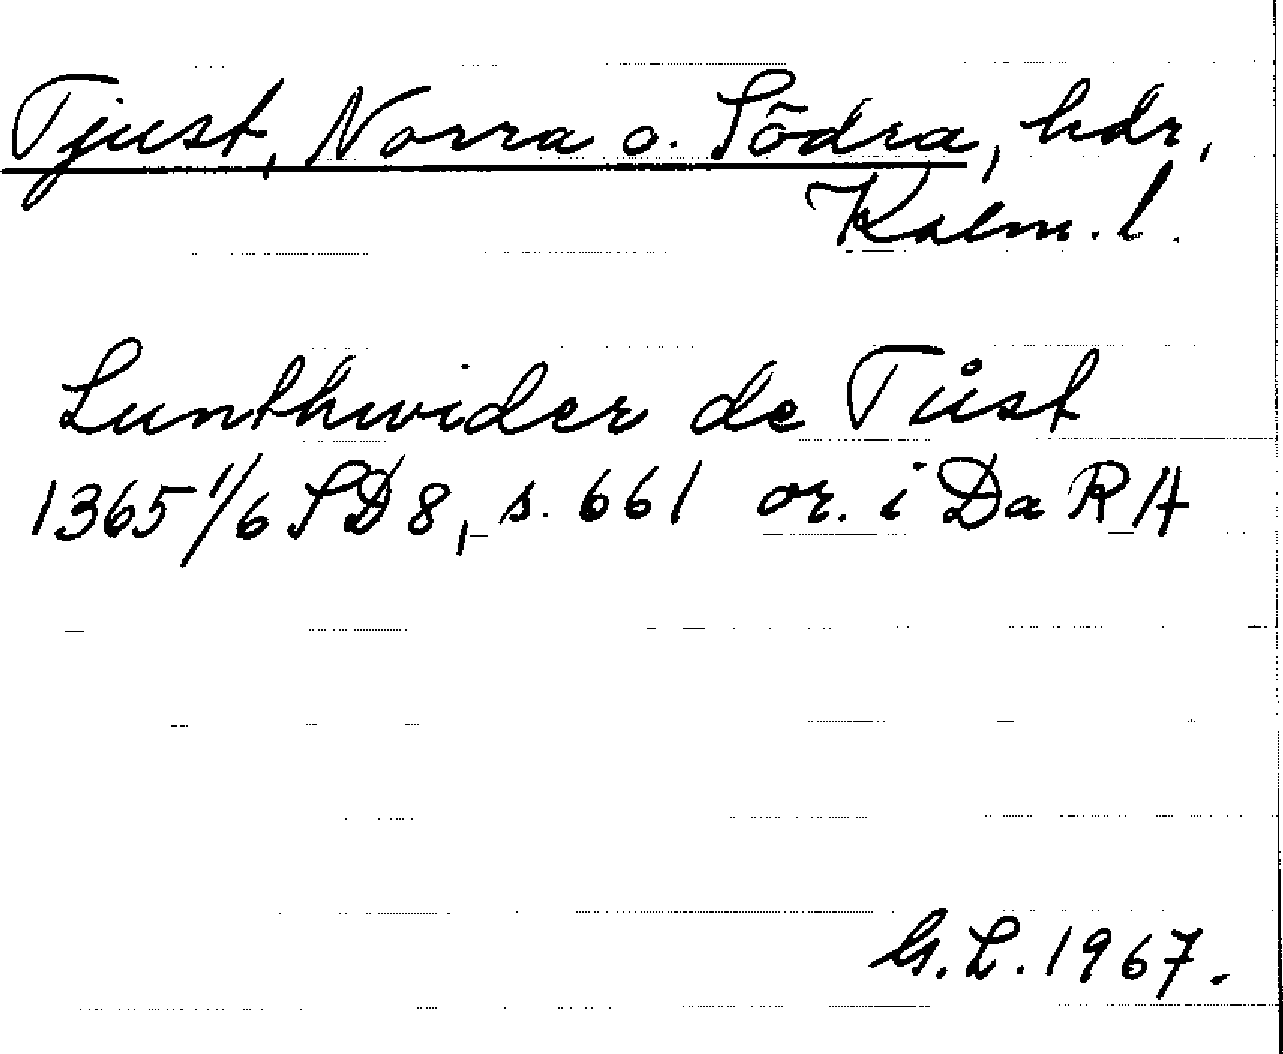 Tjust, Norra o. Södra, hdr,
Kalm. l.
Lunthwider de Tůst
1365 1/6 SD 8, s. 661 or. i Da RA
G. L. 1967.